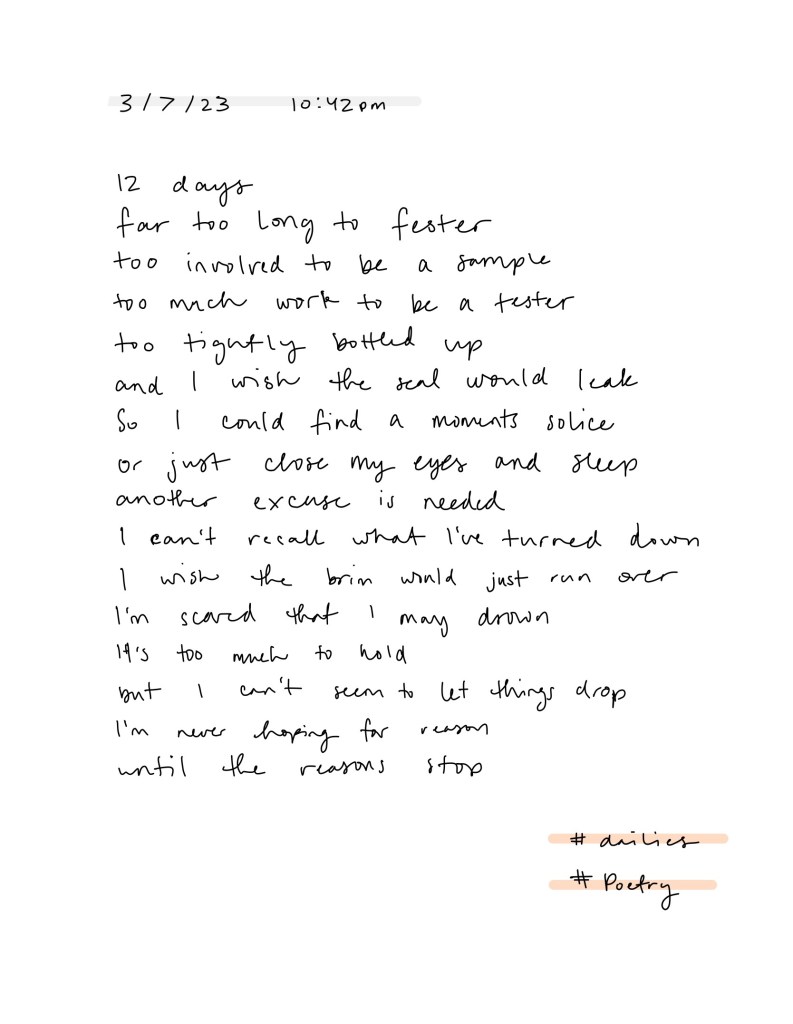 3/7/23 10:42pm
12 days
far too long to fester
too involved to be a sample
too much work to be a tester
too tightly bottled up
and I wish the seal would leak
So I could find a moments solice
or just close my eyes and sleep
another excuse is needed
I can't recall what I've turned down
I wish the brim would just run over
I'm scared that I may drown
It's too much to hold
but I can't seem to let things drop
I'm never hoping for reason
until the reasons stop
# dailies
# Poetry